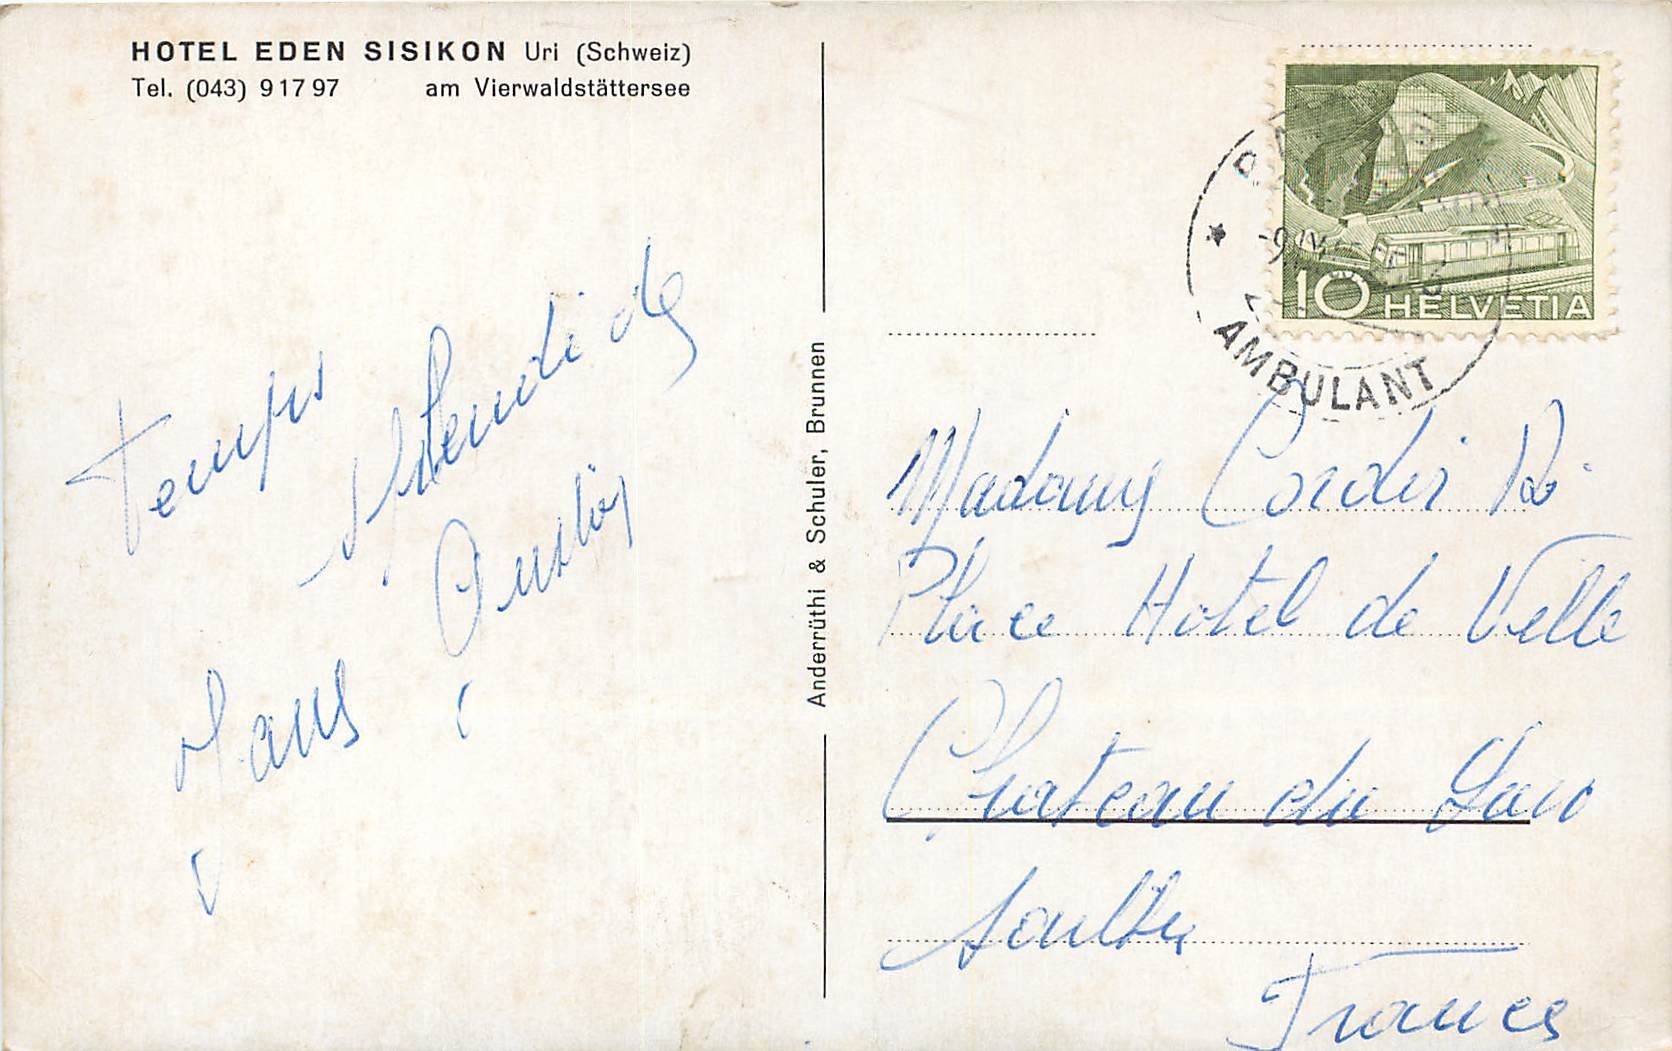 HOTEL EDEN SISIKON Uri (Schweiz)
Tel. (043) 9 17 97 am Vierwaldstättersee
Temps
splendide
Anderrüthi & Schuler, Brunnen
10 HELVETIA
AMBULANT
Madame Cordier
Place Hotel de Ville
Chateau du
France